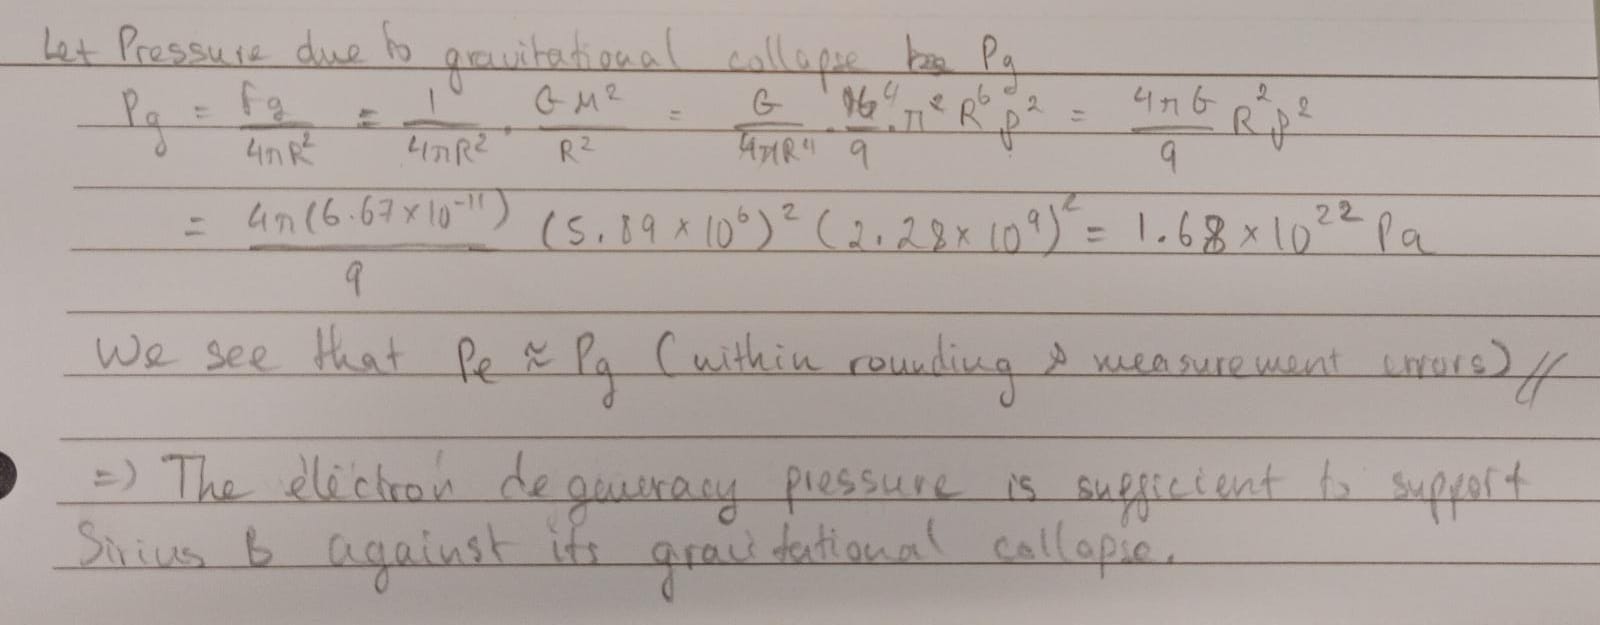 Let Pressure due to gravitational collapse be Pg
Pg = Fg/4πR² = 1/4πR² · GM²/R² = G/4πR⁴ · 16⁴/9 · π² R⁶ ρ² = 4πG/9 R²ρ²
= 4π(6.67×10⁻¹¹)/9 (5.89×10⁶)² (2.28×10⁹)² = 1.68×10²² Pa
We see that Pe ≈ Pg (within rounding & measurement errors)//
=> The electron degeneracy pressure is sufficient to support
Sirius B against its gravitational collapse.